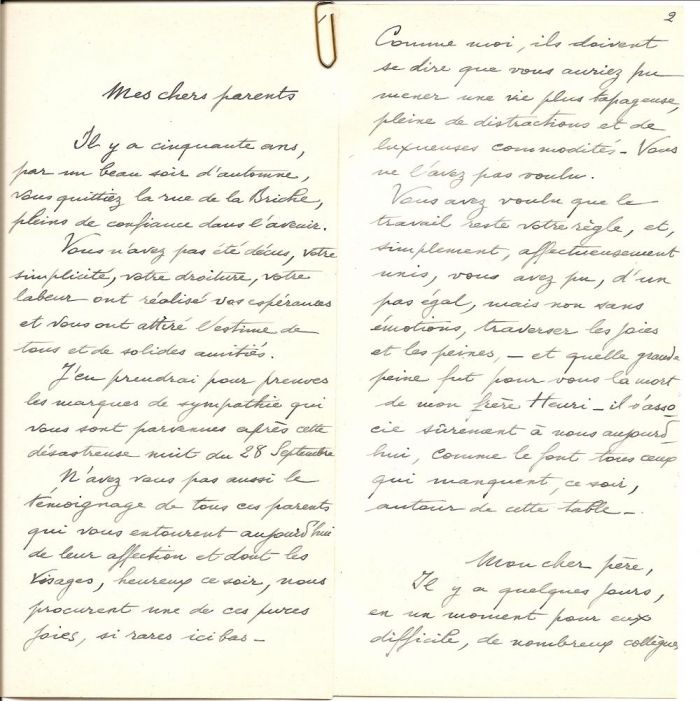 Mes chers parents
Il y a cinquante ans,
par un beau soir d'automne,
vous quittiez la rue de la Briche,
pleins de confiance dans l'avenir.
Vous n'avez pas été déçus, votre
simplicité, votre droiture, votre
labeur ont réalisé vos espérances
et vous ont attiré l'estime de
tous et de solides amitiés.
J'en prendrai pour preuves
les marques de sympathie qui
vous sont parvenues après cette
désastreuse nuit du 28 Septembre
N'avez vous pas aussi le
témoignage de tous ces parents
qui vous entourent aujourd'hui
de leur affection et dont les
visages, heureux ce soir, nous
procurent une de ces pures
joies, si rares ici bas -
2
Comme moi, ils doivent
se dire que vous auriez pu
mener une vie plus tapageuse,
pleine de distractions et de
luxueuses commodités - Vous
ne l'avez pas voulu.
Vous avez voulu que le
travail reste votre règle, et,
simplement, affectueusement
unis, vous avez pu, d'un
pas égal, mais non sans
émotions, traverser les joies
et les peines, - et quelle grande
peine fut pour vous la mort
de mon frère Henri - il s'asso
cie sûrement à nous aujourd'
hui, comme le font tous ceux
qui manquent, ce soir,
autour de cette table -.
Mon cher père,
Il y a quelques jours,
en un moment pour eux
difficile, de nombreux collègues